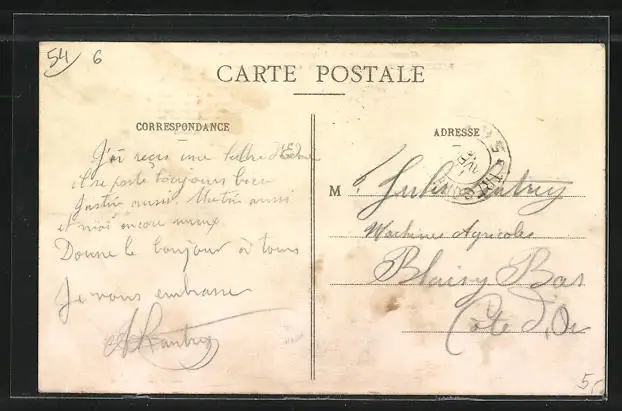 54 6
CARTE POSTALE
CORRESPONDANCE
ADRESSE
J'ai reçu une lettre
il se porte toujours bien
Justin aussi aussi
et moi encore mieux
Donne le bonjour à tous
Je vous embrasse
M
Machines Agricoles
Blaisy Bas
Côte d'Or
5